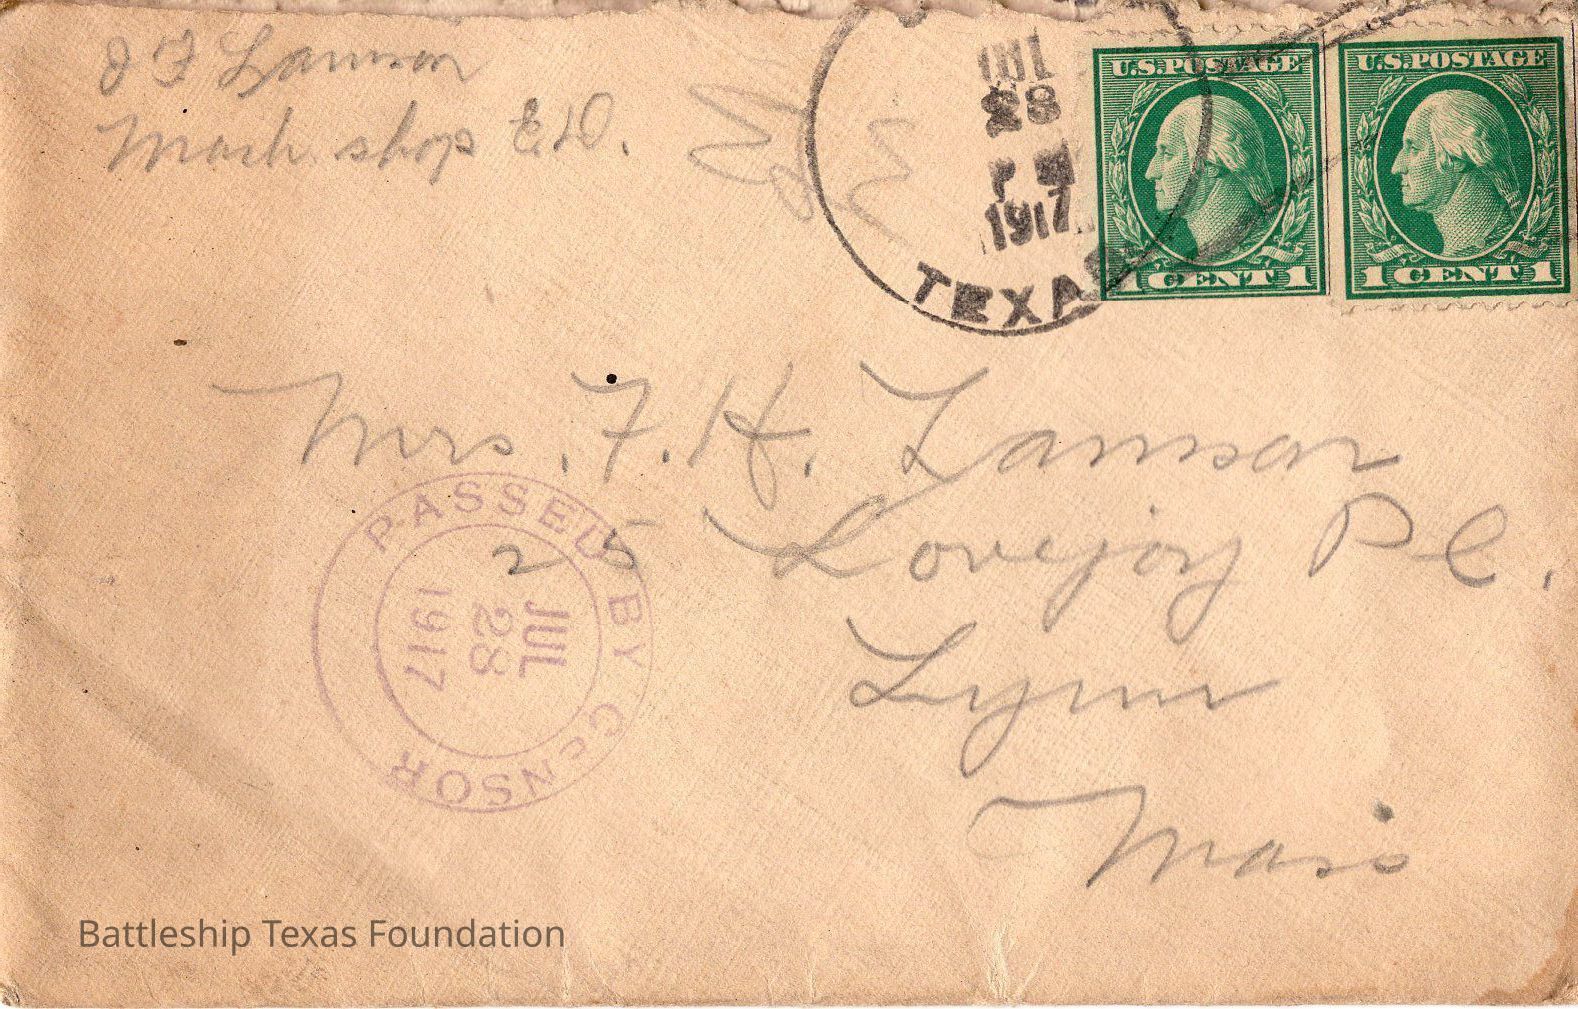 J F Lamson
Mach. shop E.D.
JUL
28
P M
1917
TEXAS
U.S. POSTAGE
1 CENT 1
U.S. POSTAGE
1 CENT 1
Mrs. F. H. Lamson
25 Lovejoy Pl.
Lynn
Mass
PASSED BY CENSOR
JUL
28
1917
Battleship Texas Foundation